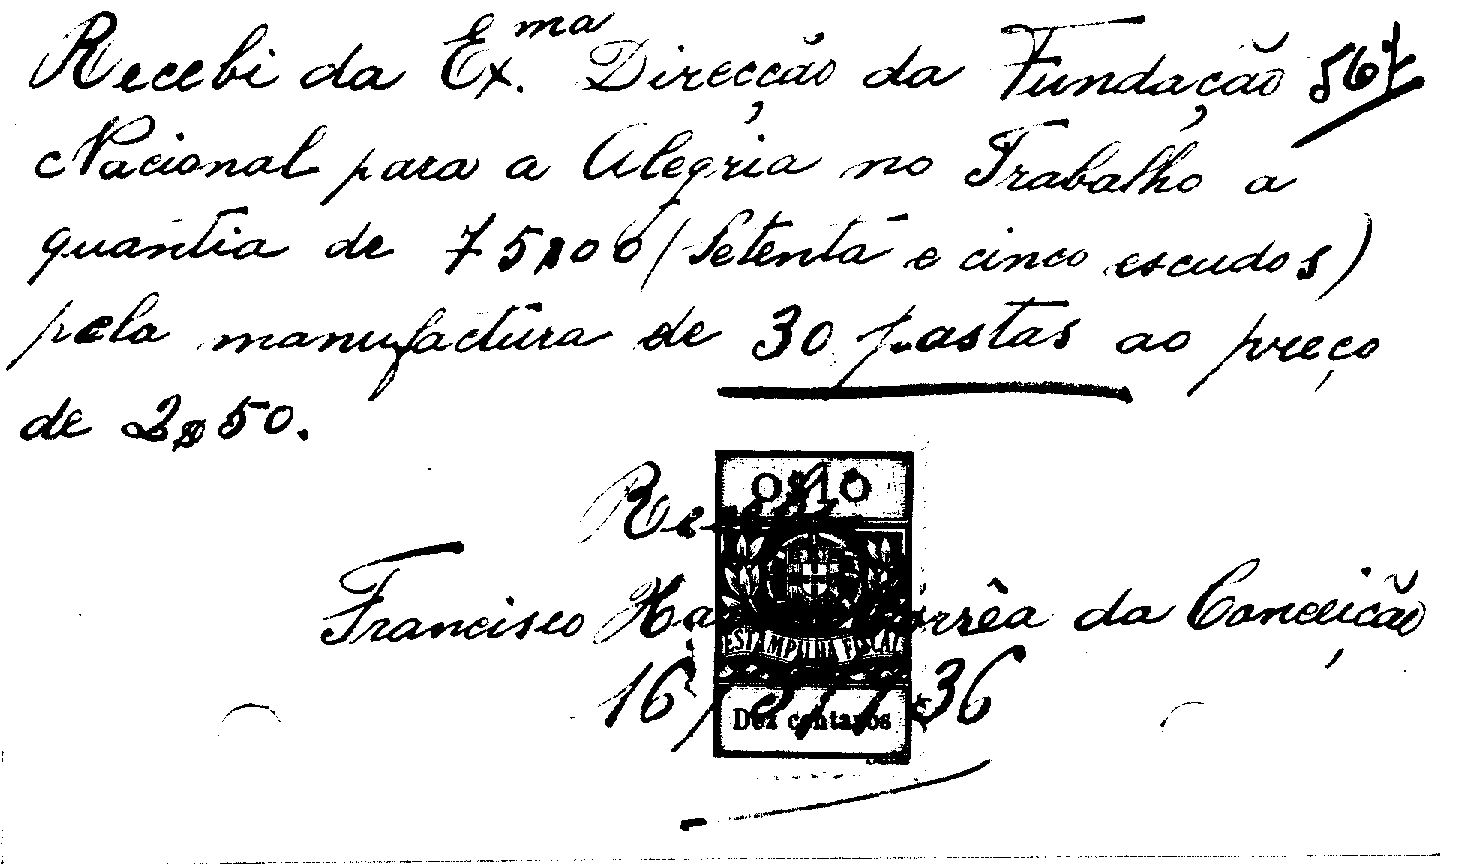 Recebi da Ex.ma Direcção da Fundação
Nacional para a Alegria no Trabalho a
quantia de 75$00 (Setenta e cinco escudos)
pela manufactura de 30 pastas ao preço
de 2$50.
0$10
Francisco Corrêa da Conceição
ESTAMPILHA FISCAL
16
Dez centavos
36